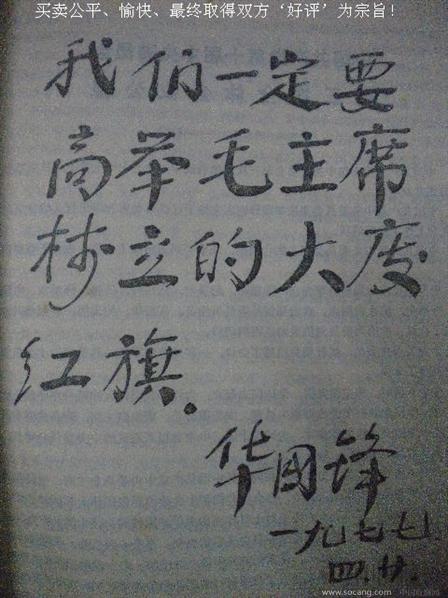 买卖公平、愉快、最终取得双方‘好评’为宗旨！
我们一定要
高举毛主席
树立的大庆
红旗.
华国锋
一九七七
四.廿.
www.socang.com